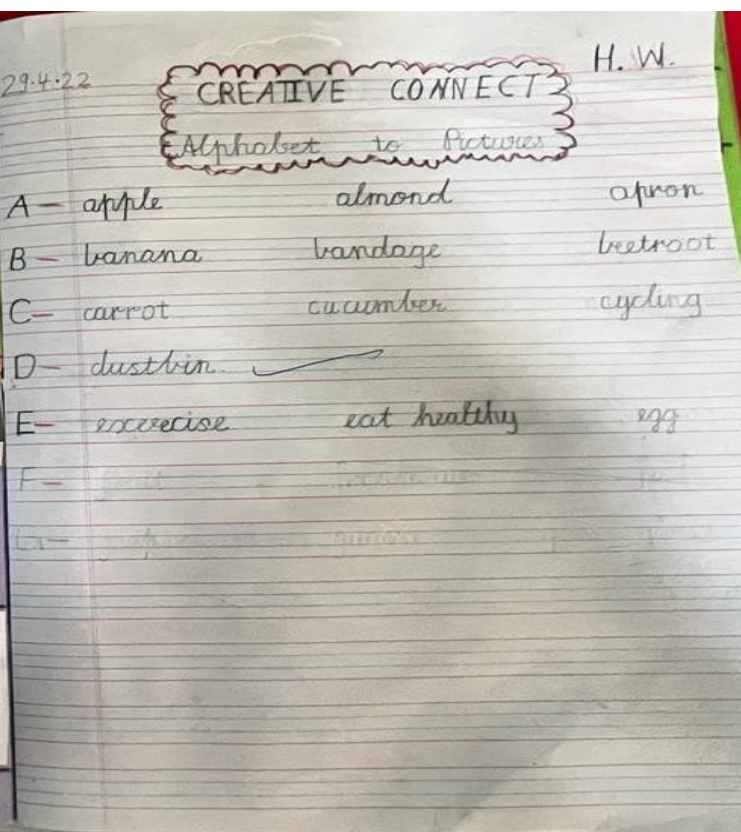 H. W.
29.4.22
CREATIVE CONNECT
Alphabet to Pictures
A - apple almond apron
B - banana bandage beetroot
C - carrot cucumber cycling
D - dustbin
E - excerecise eat healthy egg
F - fruit
G -